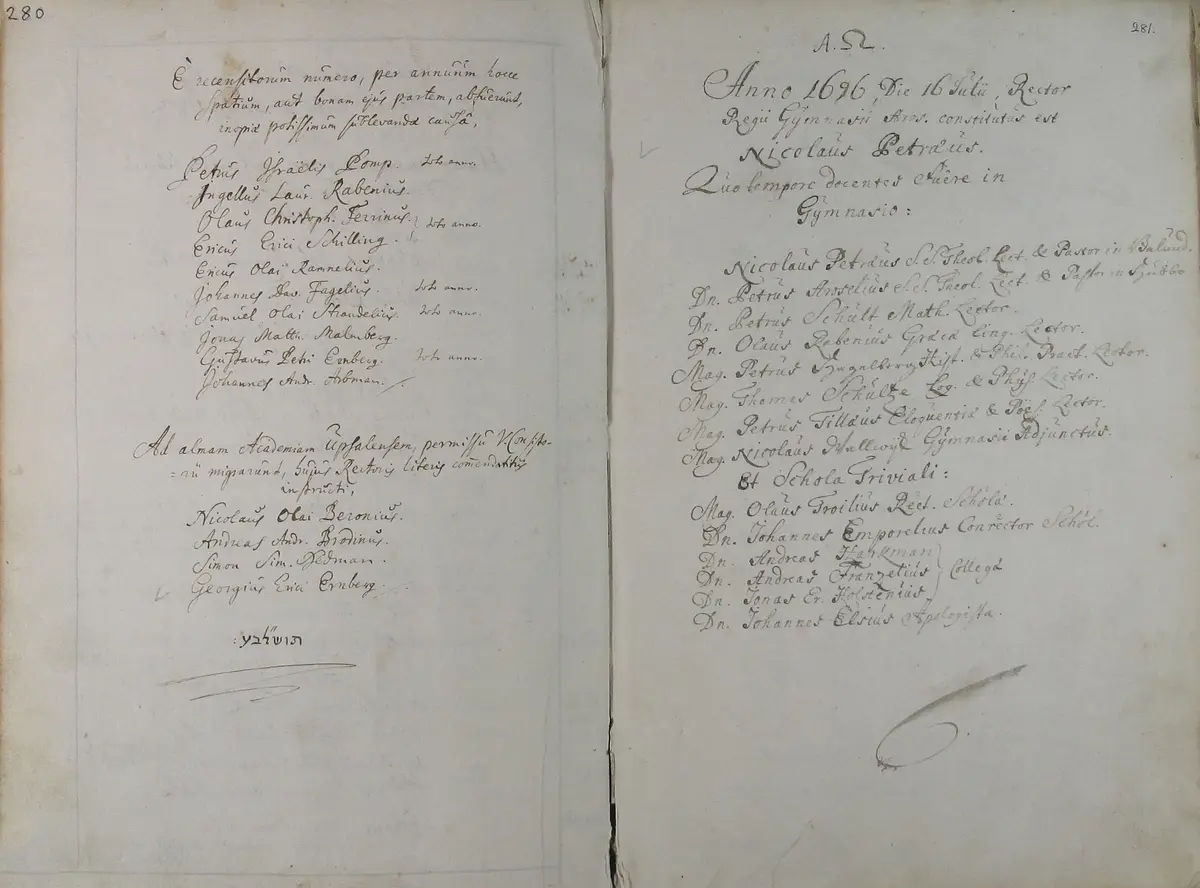 280
È recensitorum numero, per annuum hocce
spatium, aut bonam ejus partem, abfuerunt,
inopiæ potissimum sublevandæ causâ,
Petrus Israelis Pomp. toto anno.
Ingellus Laur. Rabenius.
Olaus Christoph. Ferrinus. toto anno.
Ericus Erici Schilling.
Ericus Olai Ramnelius.
Johannes Dav. Fagelius. toto anno.
Samuel Olai Strandelius. toto anno.
Jonas Matth. Malmberg.
Gustavus Petri Ernberg. toto anno.
Johannes Andr. Arbman.
Ad almam Academiam Upsalensem, permissu V. Consisto-
=rii migrarunt, hujus Rectoris literis commendatitiis
instructi,
Nicolaus Olai Beronius.
Andreas Andr. Brodinus.
Simon Sim. Hedman.
Georgius Erici Ernberg.
תושלבע:
281.
A.Ω.
Anno 1696, Die 16 Julii, Rector
Regii Gymnasii Aros. constitutus est
Nicolaus Petræus.
Quo tempore docentes fuêre in
Gymnasio:
Nicolaus Petræus S.S. Theol. Lect. & Pastor in
Dn. Petrus Aroselius S.S. Theol. Lect. & Pastor in
Dn. Petrus Schult Math. Lector.
Dn. Olaus Rabenius Græcæ Ling. Lector.
Mag. Petrus Hist. & Phil. Pract. Lector.
Mag. Thomas Schultze Log. & Phys. Lector.
Mag. Petrus Tillæus Eloquentiæ & Poës. Lector.
Mag. Nicolaus Wallwijk Gymnasii Adjunctus.
Et Schola Triviali:
Mag. Olaus Troilius Rect. Scholæ.
Dn. Johannes Emporelius Conrector Schol.
Dn. Andreas Harkman
Dn. Andreas Franzelius Collegæ
Dn. Jonas Er. Holstenius
Dn. Johannes Elsius Apologista.